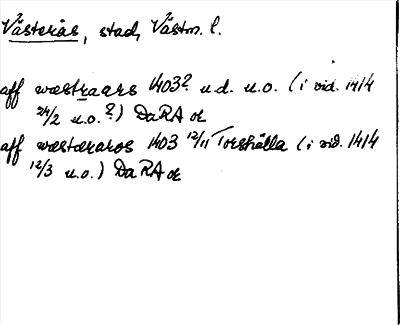 Västerås, stad, Västm. l.
aff wæstraars 1403? u.d. u.o. (i vid. 1414
24/2 u.o.?) DaRA or
aff wæstæraros 1403 12/11 Torshälla (i vid. 1414
12/3 u.o.) DaRA or